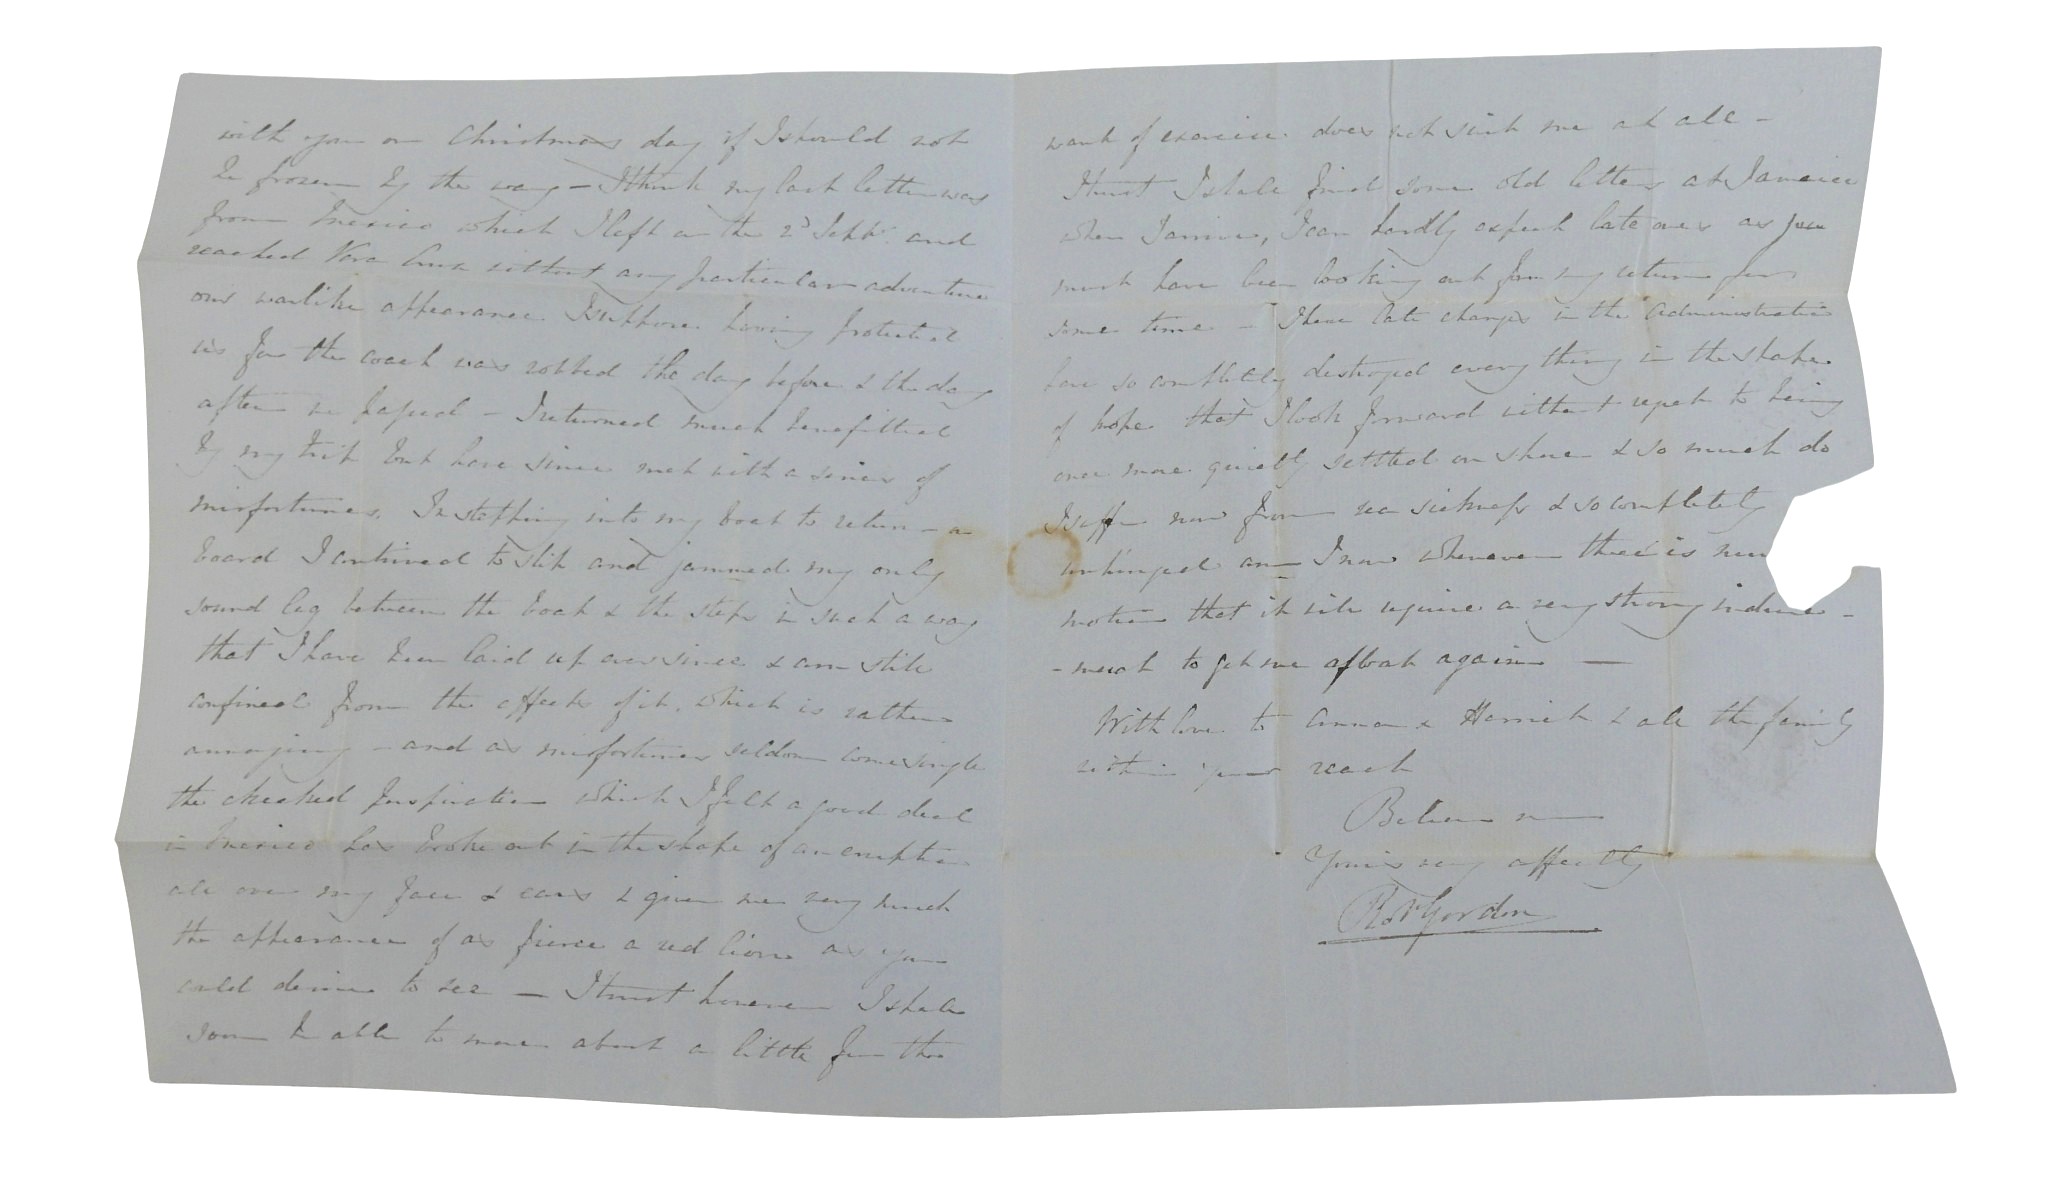 with you on Christmas day if I should not
be frozen by the way – I think my last letter was
from Mexico which I left on the 2d Septr. and
reached Vera Cruz without any particular adventure
our warlike appearance I suppose having protected
us for the coach was robbed the day before & the day
after we passed – I returned much benefitted
by my trip but have since met with a series of
misfortunes. In stepping into my boat to return on
board I contrived to slip and jammed my only
sound leg between the boat & the steps in such a way
that I have been laid up ever since & am still
confined from the effects of it, which is rather
annoying – and as misfortunes seldom come single
the checked perspiration which I felt a good deal
in Mexico has broke out in the shape of an eruption
all over my face & ears & gives me very much
the appearance of as fierce a red lion as you
could desire to see – I trust however I shall
soon be able to move about a little for the
want of exercise does not suit me at all –
I trust I shall find some old letters at Jamaica
when I arrive, I can hardly expect late ones as you
must have been looking out for my return for
some time – These late changes in the Administration
have so completely destroyed every thing in the shape
of hope that I look forward without regret to being
once more quietly settled on shore & so much do
I suffer now from sea sickness & so completely
unhinged am I now whenever there is
motion that it will require a very strong induce-
-ment to get me afloat again —
With love to Anna & Harriet & all the family
within your reach
Believe me
Yours very affectly
Robt Gordon